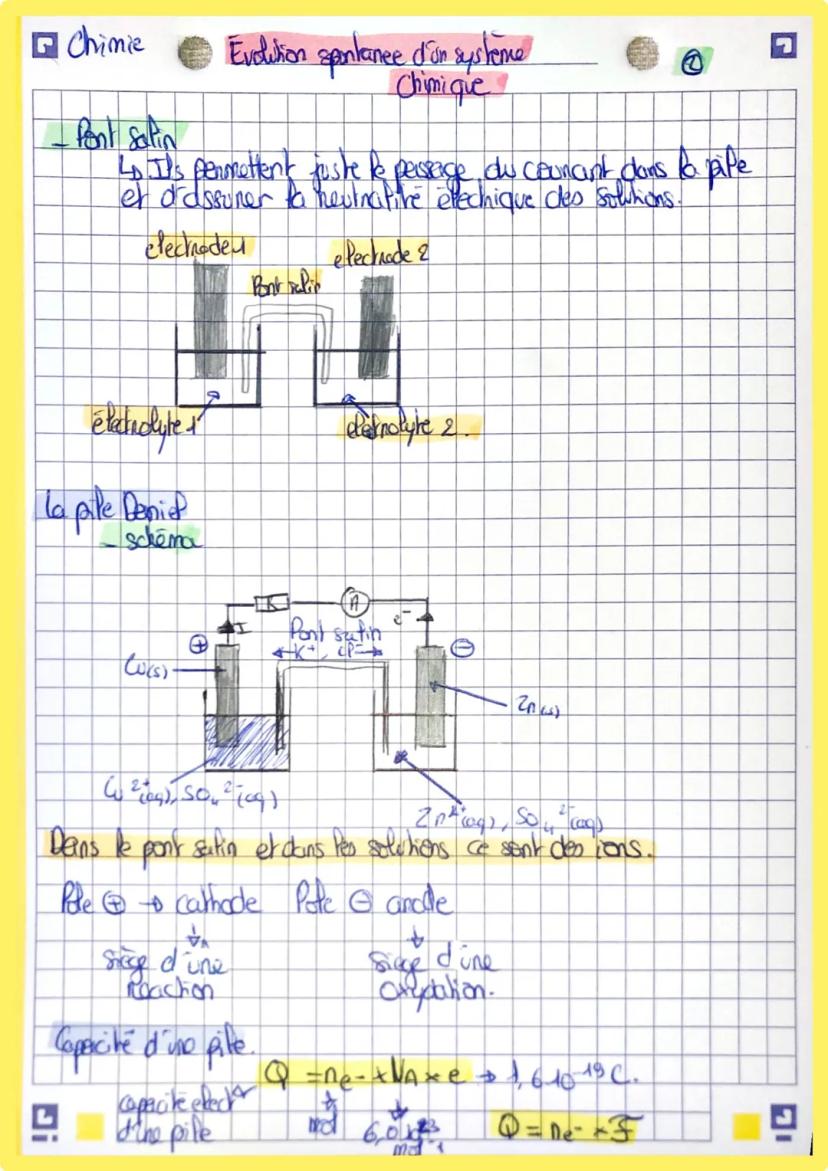 Chimie
Evolution spontanee d'un système
Chimique
②
- Pont Salin
↳ Ils permettent juste le passage du courant dans la pile
et d'assurer la neutralité électrique des solutions.
electrode 1
electrode 2
Pont salin
électrolyte 1
électrolyte 2.
La pile Daniel
- schéma
K
A
I
e⁻
⊕
Pont salin
⊖
K⁺, Cl⁻
Cu(s)
Zn(s)
Cu²⁺(aq), SO₄²⁻(aq)
Zn²⁺(aq), SO₄²⁻(aq)
Dans le pont salin et dans les solutions ce sont des ions.
Pole ⊕ → cathode Pole ⊖ anode
Siège d'une
Siege d'une
réaction
oxydation.
Capacité d'une pile.
Q = ne- × NA × e → 1,6 10⁻¹⁹ C.
capacité elect
d'une pile
mol
6,0 10²³
mol⁻¹
Q = ne- × F